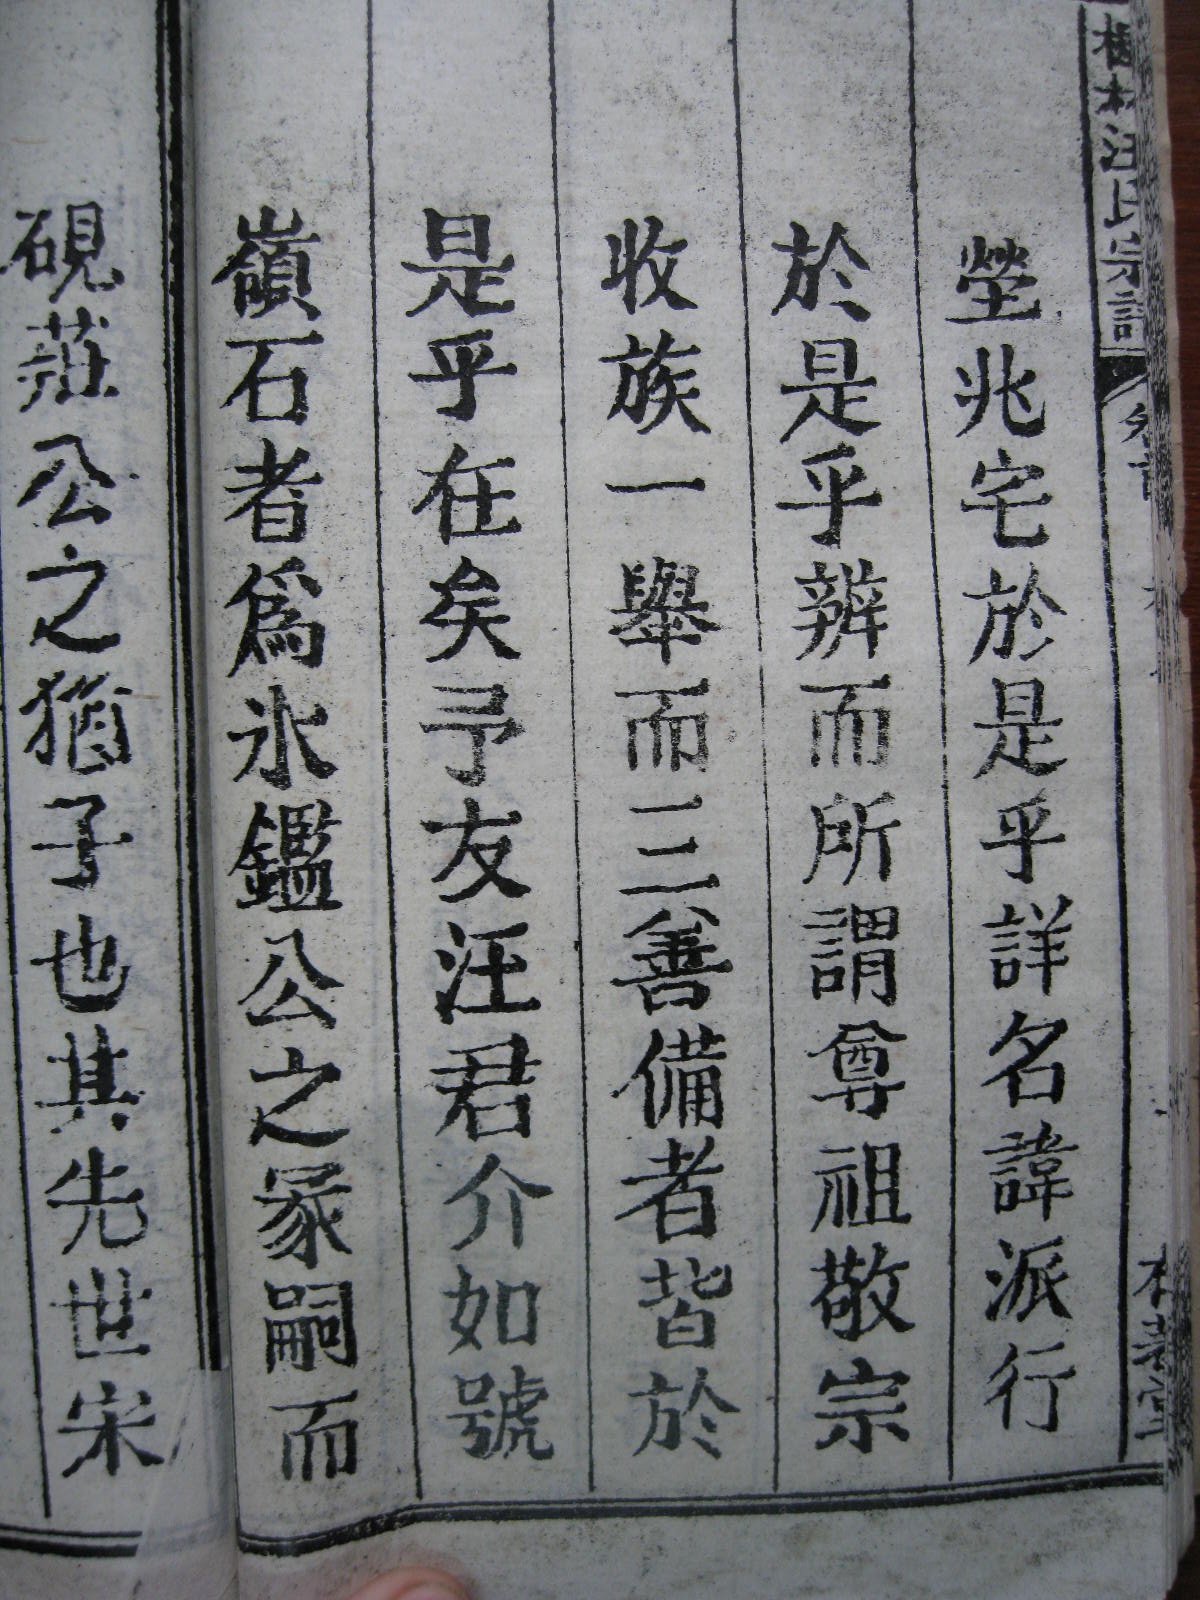 汪氏宗譜
塋兆宅於是乎詳名諱派行
於是乎辨而所謂尊祖敬宗
收族一舉而三善備者皆於
是乎在矣予友汪君介如號
嶺石者為氷鑑公之冡嗣而
硯莊公之猶子也其先世宋